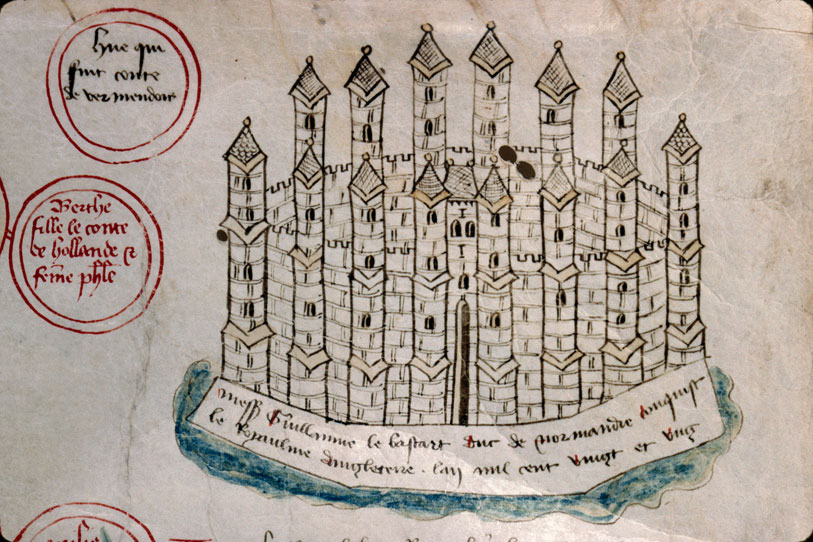 Hue qui
fuit conte
de vermendois
Berthe
fille le conte
de hollande et
feme phle
Mess Guillaume le bastart duc de Normandie conquist
le Royaulme dangleterre . lan mil cent vingt et ung